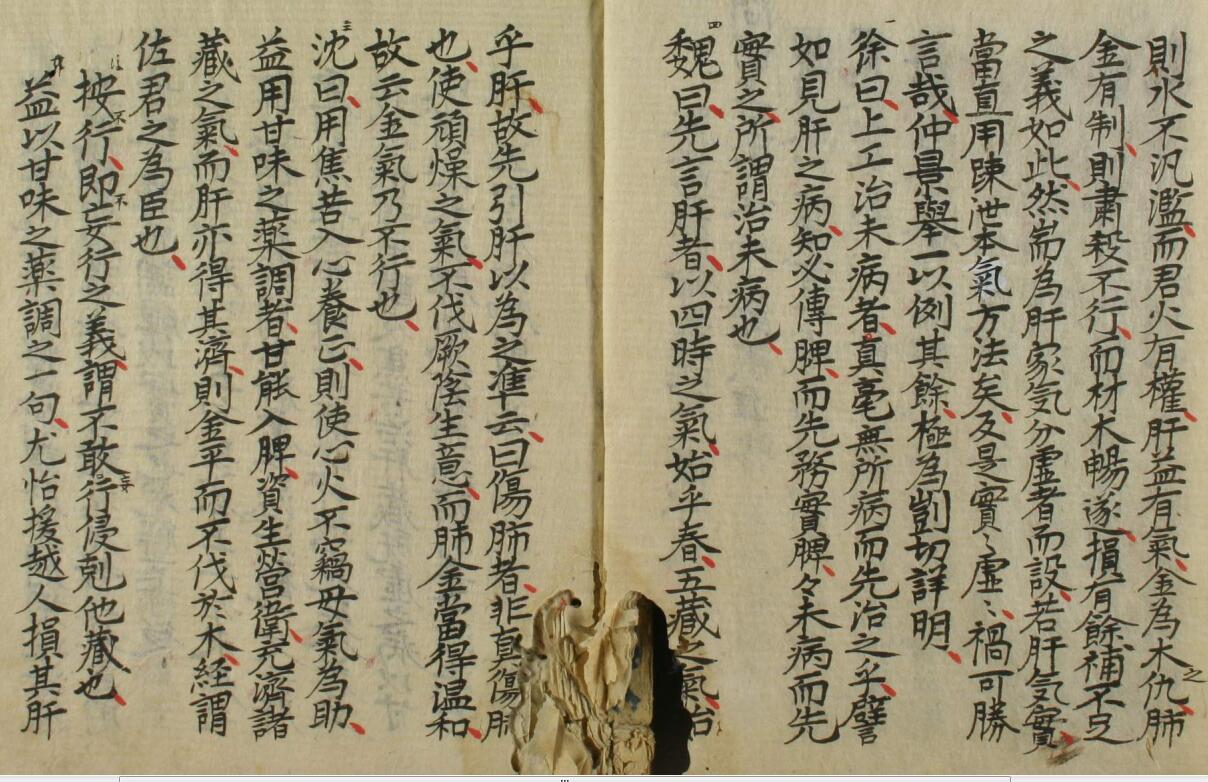 則水不汎濫而君火有權肝益有氣金為木之仇肺
金有制則肅殺不行而材木暢遂損有餘補不足
之義如此然耑為肝家气分虛者而設若肝气實
當直用疎泄本氣方法矣及是實〻虛〻禍可勝
言哉仲景舉一以例其餘極為剴切詳明
徐曰上工治未病者真毫無所病而先治之乎譬
如見肝之病知必傳脾而先務實脾々未病而先
實之所謂治未病也
四魏曰先言肝者以四時之氣始乎春五藏之氣治
乎肝故先引肝以為之準云曰傷肺者非真傷肺
也使頑燥之氣不伐厥陰生意而肺金當得温和
故云金氣乃不行也
三沈曰用焦苦入心養正則使心火不竊母氣為助
益用甘味之薬調者甘能入脾資生營衛充濟諸
藏之氣而肝亦得其濟則金平而不伐於木經謂
佐君之為臣也
注按不行即不妄行之義謂不敢妄行侵剋他藏也
益以甘味之薬調之一句尤怡援越人損其肝